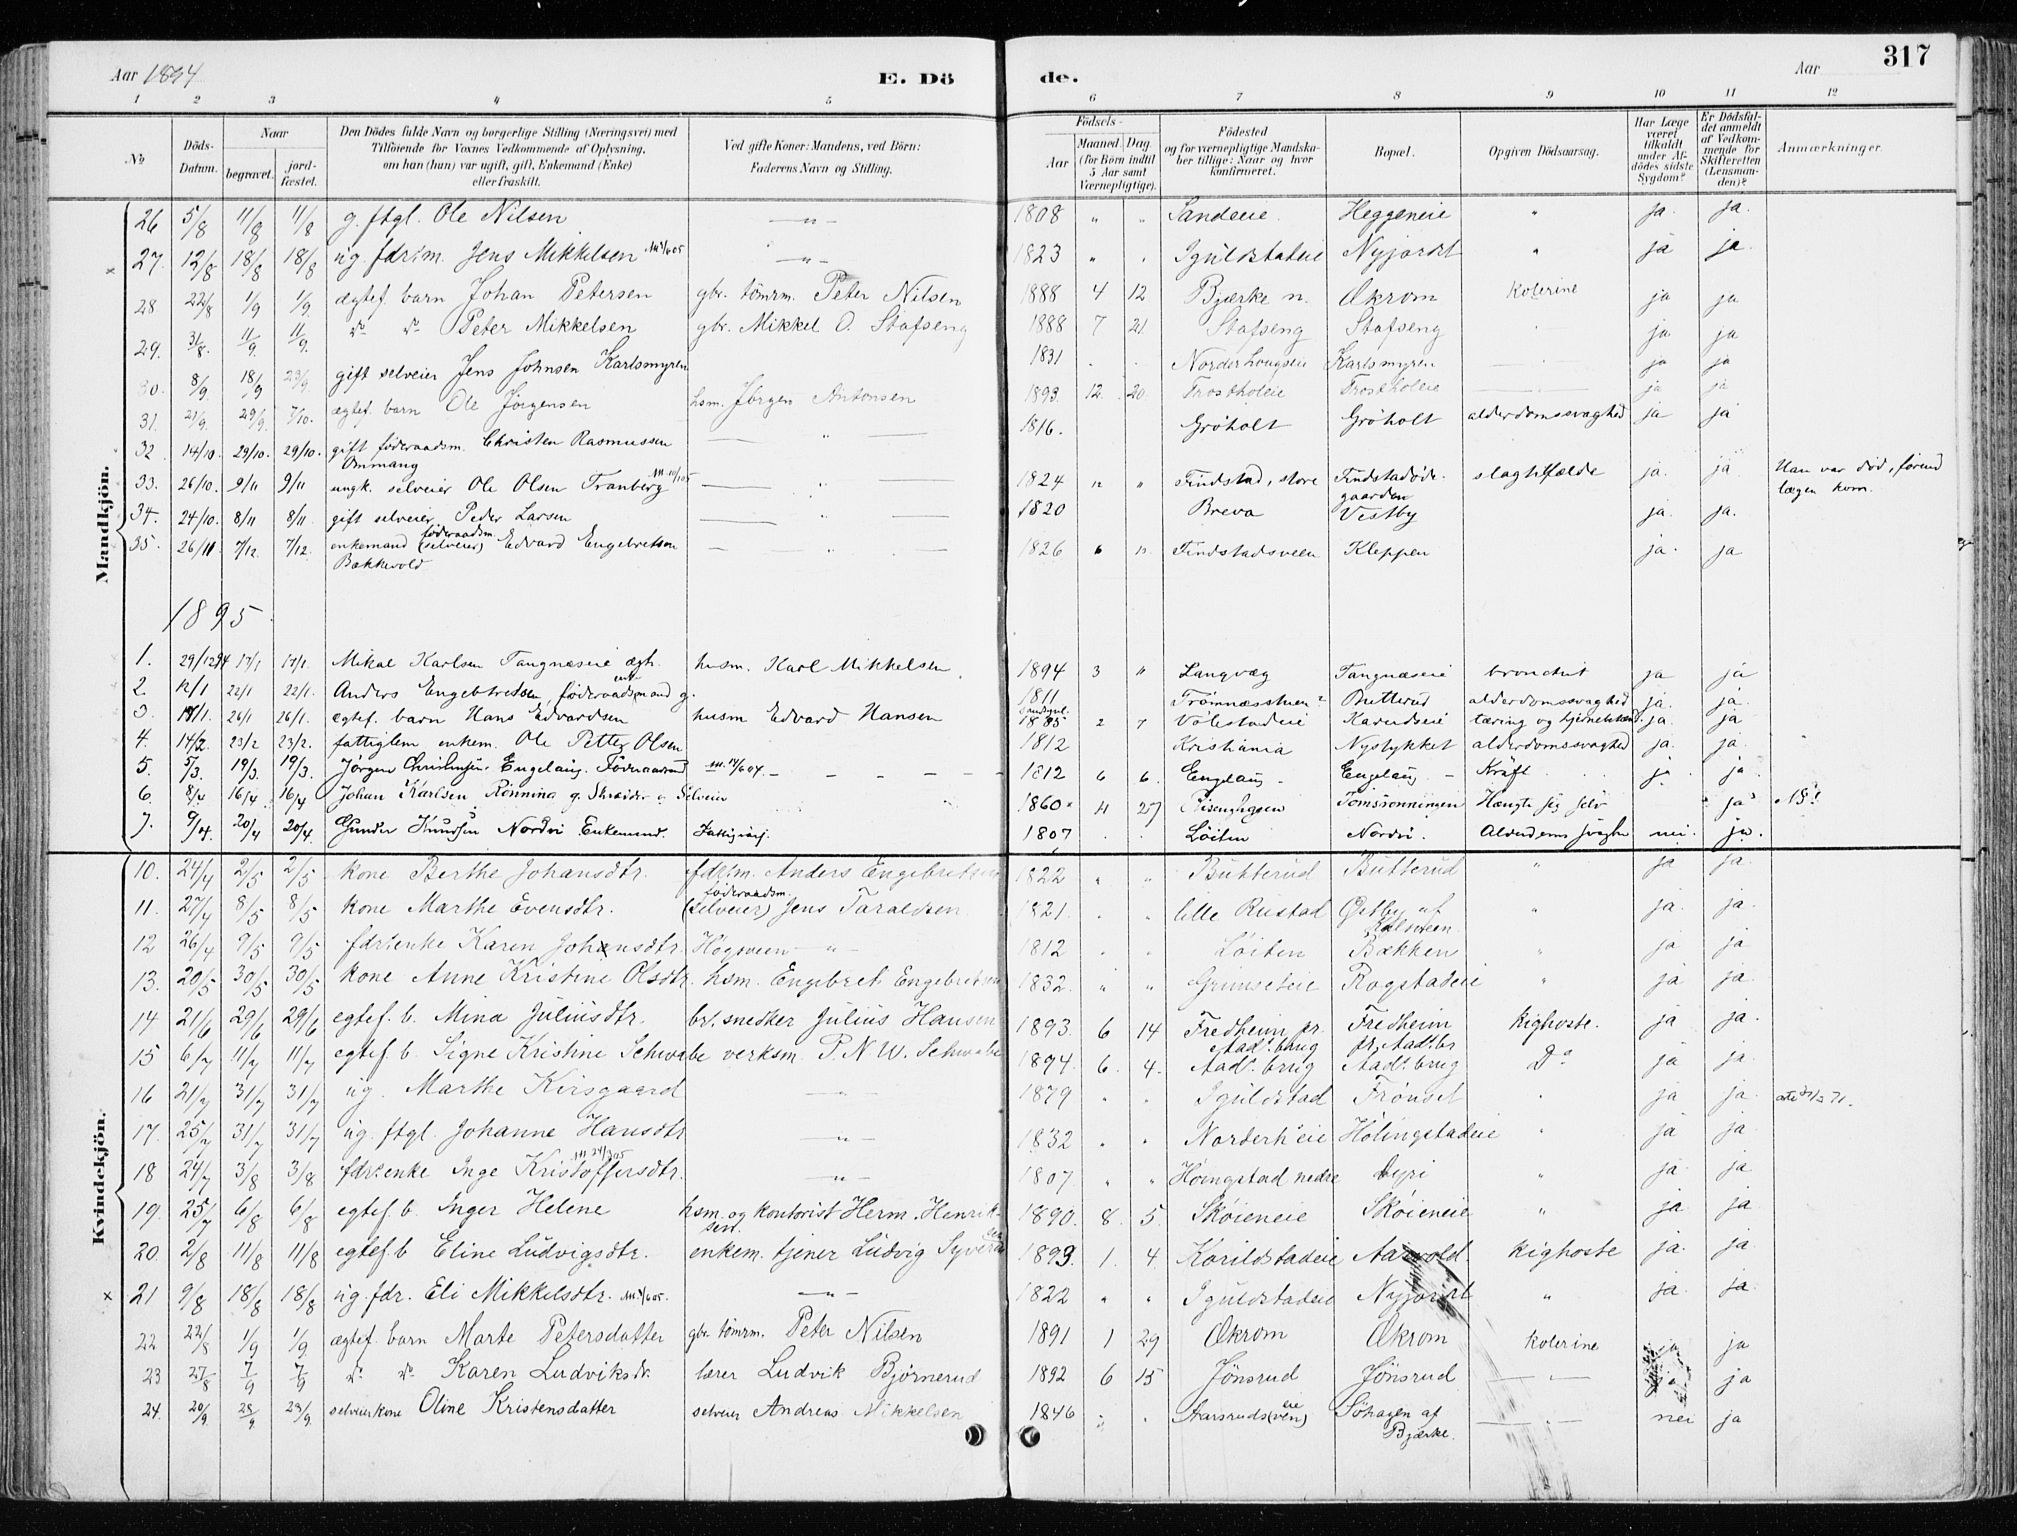 Aar 1894
E. Döde.
Aar
317
1 2 3 4 5 6 7 8 9 10 11 12
No
Döds-Datum.
Naar
begravet.
jordfæstet.
Den Dödes fulde Navn og borgerlige Stilling (Næringsvei) med
Tilföiende for Voxnes Vedkommende af Oplysning,
om han (hun) var ugift, gift, Enkemand (Enke)
eller fraskilt.
Ved gifte Koner: Mandens, ved Börn:
Faderens Navn og Stilling.
Födsels-
Aar
Maaned. Dag.
(for Börn indtil
5 Aar samt
Værnepligtige).
Födested
og for værnepligtige Mandska-
ber tillige: Naar og hvor
konfirmeret.
Bopæl.
Opgiven Dödsaarsag.
Har Læge
været
tilkaldt
under Af-
dödes sidste
Sygdom?
Er Dödsfal-
det anmeldt
af Vedkom-
mende for
Skifteretten
(Lensman-
den)?
Anmærkninger.
Mandkjön.
26 5/8 11/8 11/8 g. ftgl. Ole Nilsen — " — 1808 " " Sandeeie Heggeneie " ja. ja.
27. 12/8 18/8 18/8 ug. fdrtm. Jens Mikkelsen — " — 1823 " " Iguldstadeie Nyjordet " ja ja.
28 22/8 1/9 1/9. ægtef. barn Johan Petersen gbr. tømrm. Peter Nilsen 1888 4 12 Bjærke n. Økrom Kolerine ja ja
29. 31/8. 11/9. 11/9. do do Peter Mikkelsen gbr. Mikkel O. Stafseng 1888 7 21 Stafseng Stafseng ja ja
30. 8/9. 18/9 23/9. gift selveier Jens Johnsen Karlsmyren 1831 Norderhougseie Karlsmyren ja ja
31. 21/9. 29/9. 7/10. ægtef. barn Ole Jörgensen hsm. Jørgen Antonsen 1893. 12. 20. Frostholeie Frostholeie ja ja
32. 14/10. 29/10. 29/10. gift føderaadsm. Christen Rasmussen
Ommang 1816. Grøholt Grøholt alderdomssvaghed ja ja
33. 26/10. 9/11 9/11 ungk. selveier Ole Olsen Tranberg 1824 " " Findstad, store Findstadøde-
gaarden slagtilfælde ja. ja Han var død, førend
lægen kom.
34. 24/10. 8/11 8/11 gift selveier Peder Larsen 1820 Breva Vestby ja. ja.
35. 26/11 7/12. 7/12. enkemand (selveier) føderaadsm. Edvard Engebretsen
Bakkevold 1826 Findstadsveen Kleppen ja. ja
1895.
1. 29/12 94 17/1 17/1. Mikal Karlsen Tangnæseie ægt. husm. Karl Mikkelsen. 1894 3 " Langvæg Tangnæseie bronchit ja ja
2. 12/1 22/1 22/1. Anders Engebretsen, føderaadsmand g. 1811 Butterud alderdomssvaghed ja. ja.
3. 26/1 26/1. ægtef. barn Hans Edvardsen husm Edvard Hansen 2 7 Volestadeie tæring og ja. ja
4. 14/2. 23/2 23/2. fattiglem enkem. Ole Petter Olsen 1812 Kristiania Nystykket alderdomssvaghed ja. ja.
5. 5/3. 19/3. 19/3 Jørgen Christensen Engelaug. Föderaadsmd. 1812 6 6. Engelaug Engelaug Kræft ja. ja.
6. 8/4 16/4. 16/4 Johan Karlsen Rönning g. Skræder o Selveier 1860 4 27 Hængte sig selv ja
7. 9/4. 20/4 20/4. Gunder Knudsen Nordvi Enkemand. 1807 Løiten Nordvi. nei ja.
Kvindekjön.
10. 24/4 2/5 2/5 kone Berthe Johansdtr. fdrtm. Anders Engebretsen 1822 " " Butterud Butterud " ja ja.
11. 27/4 8/5 8/5 kone Marthe Evensdtr. føderaadsm. (selveier) Jens Taraldsen 1821. " " lille Rustad Østby af
" ja. ja.
12 26/4 9/5 9/5 fdrtenke Karen Johansdtr. Høgsveen — " — 1812 " " Løiten Bækken " ja ja.
13. 20/5 30/5 30/5 kone Anne Kristine Olsdtr. hsm. Engebret Engebretsen 1832. " " Grimseteie Rogstadeie " ja ja.
14 21/6 29/6 29/6 egtef. b. Mina Juliusdtr. brt. snedker Julius Hansen 1893. 6 14 Fredheim pr.
Aadt. brug Fredheim
pr. Aadt. br Kighoste. ja ja.
15 6/7 11/7 11/7 egtef. b. Signe Kristine Schwabe verksm. P. N. W. Schwabe 1894. 6. 4. Aadt. brug Aadt. brug Do ja ja.
16 21/7 31/7 31/7 ug. Marthe Kirsgaard — " — 1879 " " Iguldstad Frønset " ja ja.
17. 25/7 31/7 31/7 ug. ftgl. Johanne Hansdtr — " — 1832 " " Norderh'eie Hölingstadeie " ja ja.
18 24/7 3/8 3/8 fdrtenke Inge Kristoffersdtr. — " — 1807 " " Høingstad nedre Lyri " ja. ja
19. 25/7 6/8 6/8 egtef. b. Inger Helene hsm. og kontorist Herm. Henrik-
sen. 1890. 8. 5. Skøieneie Skøieneie " ja ja
20. 2/8 11/8 11/8 egtef. b Eline Ludvigsdtr. enkem. tjener Ludvig Syversen 1893. 1. 4. Karildstadeie Aasvold. Kighoste ja. ja
21 9/8 18/8 18/8 ug. fdr. Eli Mikkelsdtr. — " — 1822 " " Iguldstadeie Nyjordet " ja. ja.
22 22/8 1/9 1/9. ægtef. barn Marte Petersdatter gbr. tømrm. Peter Nilsen 1891 1 29 Økrom Økrom Kolerine ja ja
23 27/8 7/9 7/9 do do Karen Ludviksdr. lærer Ludvik Bjørnerud 1892 6 15 Jønsrud Jønsrud — " — ja ja
24. 20/9. 23/9 23/9. selveierkone Oline Kristensdatter selveier Andreas Mikkelsen 1846 " Söhagen af
Bjærke. — " — nei ja